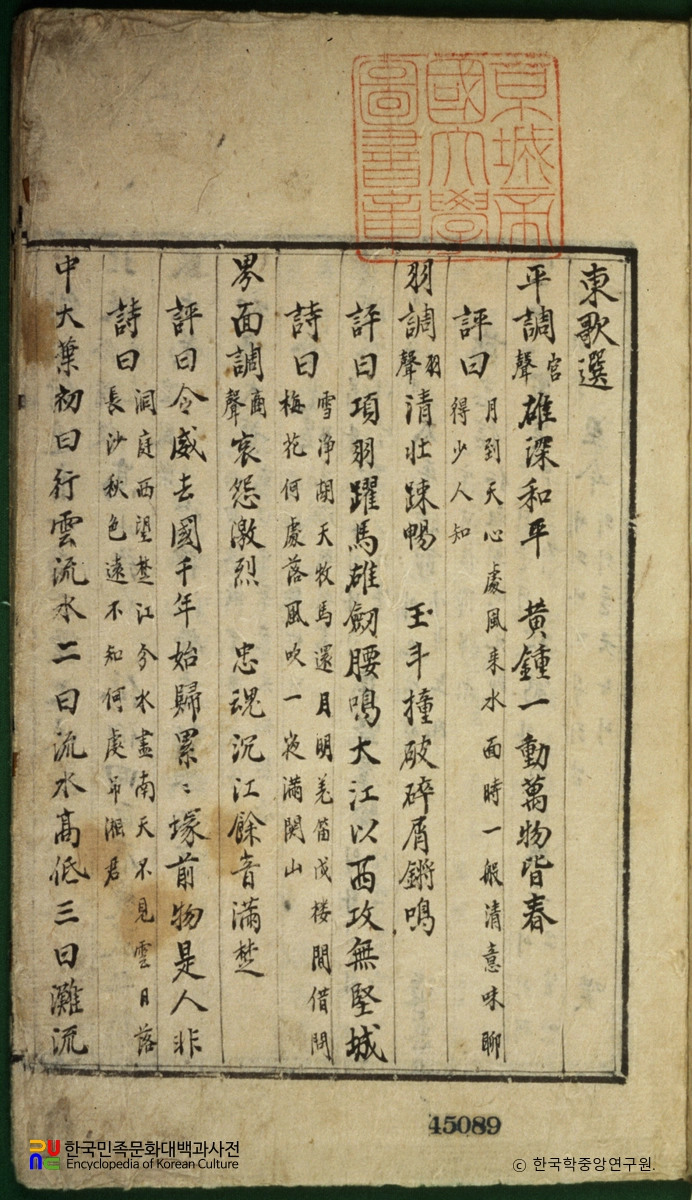 京城帝
國大學
圖書章
東歌選
平調宮聲雄深和平 黃鍾一動萬物皆春
評曰月到天心處風来水面時一般清意味聊
得少人知
羽調羽聲清壯踈暢 玉斗撞破碎屑鏘鳴
評曰項羽躍馬雄劒腰鳴大江以西攻無堅城
詩曰雪净胡天牧馬還月明羌笛戍楼間借問
梅花何處落風吹一夜滿関山
界面調商聲哀怨激烈 忠魂沉江餘音滿楚
評曰令威去國千年始歸累〻塚前物是人非
詩曰洞庭西望楚江分水盡南天不見雲日落
長沙秋色遠不知何處吊湘君
中大葉初曰行雲流水二曰流水高低三曰灘流
45089
한국민족문화대백과사전
Encyclopedia of Korean Culture
ⓒ 한국학중앙연구원.